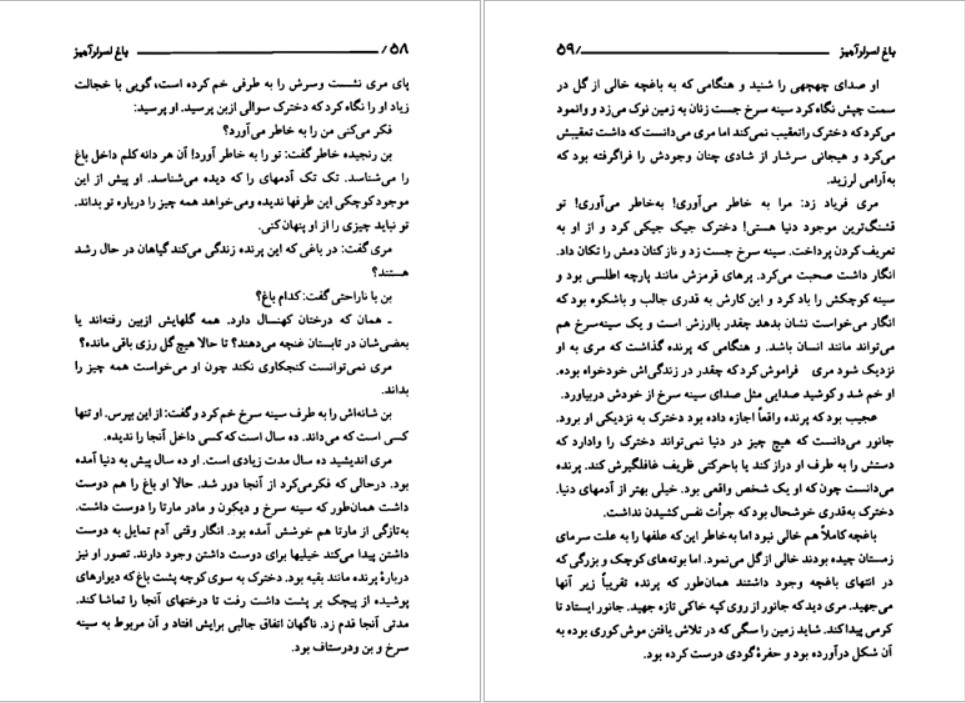 باغ اسرارآمیز ۵۸ /
پای مری نشست وسرش را به طرفی خم کرده است، گویی با خجالت
زیاد او را نگاه کرد که دخترک سوالی ازبن پرسید. او پرسید:
فکر می‌کنی من را به خاطر می‌آورد؟
بن رنجیده خاطر گفت: تو را به خاطر آورد! آن هر دانه کلم داخل باغ
را می‌شناسد. تک تک آدمهای را که دیده می‌شناسد. او پیش از این
موجود کوچکی این طرفها ندیده ومی‌خواهد همه چیز را درباره تو بداند.
تو نباید چیزی را از او پنهان کنی.
مری گفت: در باغی که این پرنده زندگی می‌کند گیاهان در حال رشد
هستند؟
بن با ناراحتی گفت: کدام باغ؟
ـ همان که درختان کهنسال دارد. همه گلهایش ازبین رفته‌اند یا
بعضی‌شان در تابستان غنچه می‌دهند؟ تا حالا هیچ گل رزی باقی مانده؟
مری نمی‌توانست کنجکاوی نکند چون او می‌خواست همه چیز را
بداند.
بن شانه‌اش را به طرف سینه سرخ خم کرد و گفت: از این بپرس. او تنها
کسی است که می‌داند. ده سال است که کسی داخل آنجا را ندیده.
مری اندیشید ده سال مدت زیادی است. او ده سال پیش به دنیا آمده
بود. درحالی که فکر می‌کرد از آنجا دور شد. حالا او باغ را هم دوست
داشت همان‌طور که سینه سرخ و دیکون و مادر مارتا را دوست داشت.
به‌تازگی از مارتا هم خوشش آمده بود. انگار وقتی آدم تمایل به دوست
داشتن پیدا می‌کند خیلیها برای دوست داشتن وجود دارند. تصور او نیز
دربارهٔ پرنده مانند بقیه بود. دخترک به سوی کوچه پشت باغ که دیوارهای
پوشیده از پیچک بر پشت داشت رفت تا درختهای آنجا را تماشا کند.
مدتی آنجا قدم زد. ناگهان اتفاق جالبی برایش افتاد و آن مربوط به سینه
سرخ و بن ودرستاف بود.
باغ اسرارآمیز /۵۹
او صدای چهچهی را شنید و هنگامی که به باغچه خالی از گل در
سمت چپش نگاه کرد سینه سرخ جست زنان به زمین نوک می‌زد و وانمود
می‌کرد که دخترک راتعقیب نمی‌کند اما مری می‌دانست که داشت تعقیبش
می‌کرد و هیجانی سرشار از شادی چنان وجودش را فراگرفته بود که
به‌آرامی لرزید.
مری فریاد زد: مرا به خاطر می‌آوری! به‌خاطر می‌آوری! تو
قشنگ‌ترین موجود دنیا هستی! دخترک جیک جیکی کرد و از او به
تعریف کردن پرداخت. سینه سرخ جست زد و ناز کنان دمش را تکان داد.
انگار داشت صحبت می‌کرد. پرهای قرمزش مانند پارچه اطلسی بود و
سینه کوچکش را باد کرد و این کارش به قدری جالب و باشکوه بود که
انگار می‌خواست نشان بدهد چقدر باارزش است و یک سینه‌سرخ هم
می‌تواند مانند انسان باشد. و هنگامی که پرنده گذاشت که مری به او
نزدیک شود مری فراموش کرد که چقدر در زندگی‌اش خودخواه بوده.
او خم شد و کوشید صدایی مثل صدای سینه سرخ از خودش دربیاورد.
عجیب بود که پرنده واقعاً اجازه داده بود دخترک به نزدیکی او برود.
جانور می‌دانست که هیچ چیز در دنیا نمی‌تواند دخترک را وادارد که
دستش را به طرف او دراز کند یا باحرکتی ظریف غافلگیرش کند. پرنده
می‌دانست چون که او یک شخص واقعی بود. خیلی بهتر از آدمهای دنیا.
دخترک به‌قدری خوشحال بود که جرأت نفس کشیدن نداشت.
باغچه کاملاً هم خالی نبود اما به‌خاطر این که علفها را به علت سرمای
زمستان چیده بودند خالی از گل می‌نمود. اما بوته‌های کوچک و بزرگی که
در انتهای باغچه وجود داشتند همان‌طور که پرنده تقریباً زیر آنها
می‌جهید. مری دید که جانور از روی کپه خاکی تازه جهید. جانور ایستاد تا
کرمی پیدا کند. شاید زمین را سگی که در تلاش یافتن موش کوری بوده به
آن شکل درآورده بود و حفرهٔ گودی درست کرده بود.